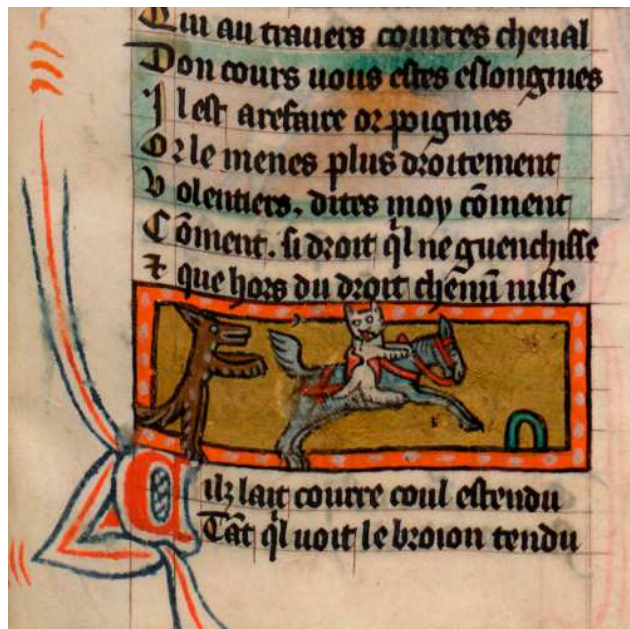 Qui au trauers courres cheual
Don cours uous estes eslongnies
Il est arefaire or poignies
Or le menes plus droitement
Volentiers. dites moy cõment
Cõment. si droit ql ne guenchisse
⁊ que hors du droit chemĩ nisse
Cilz lait courre coul estendu
Tãt ql uoit le broion tendu